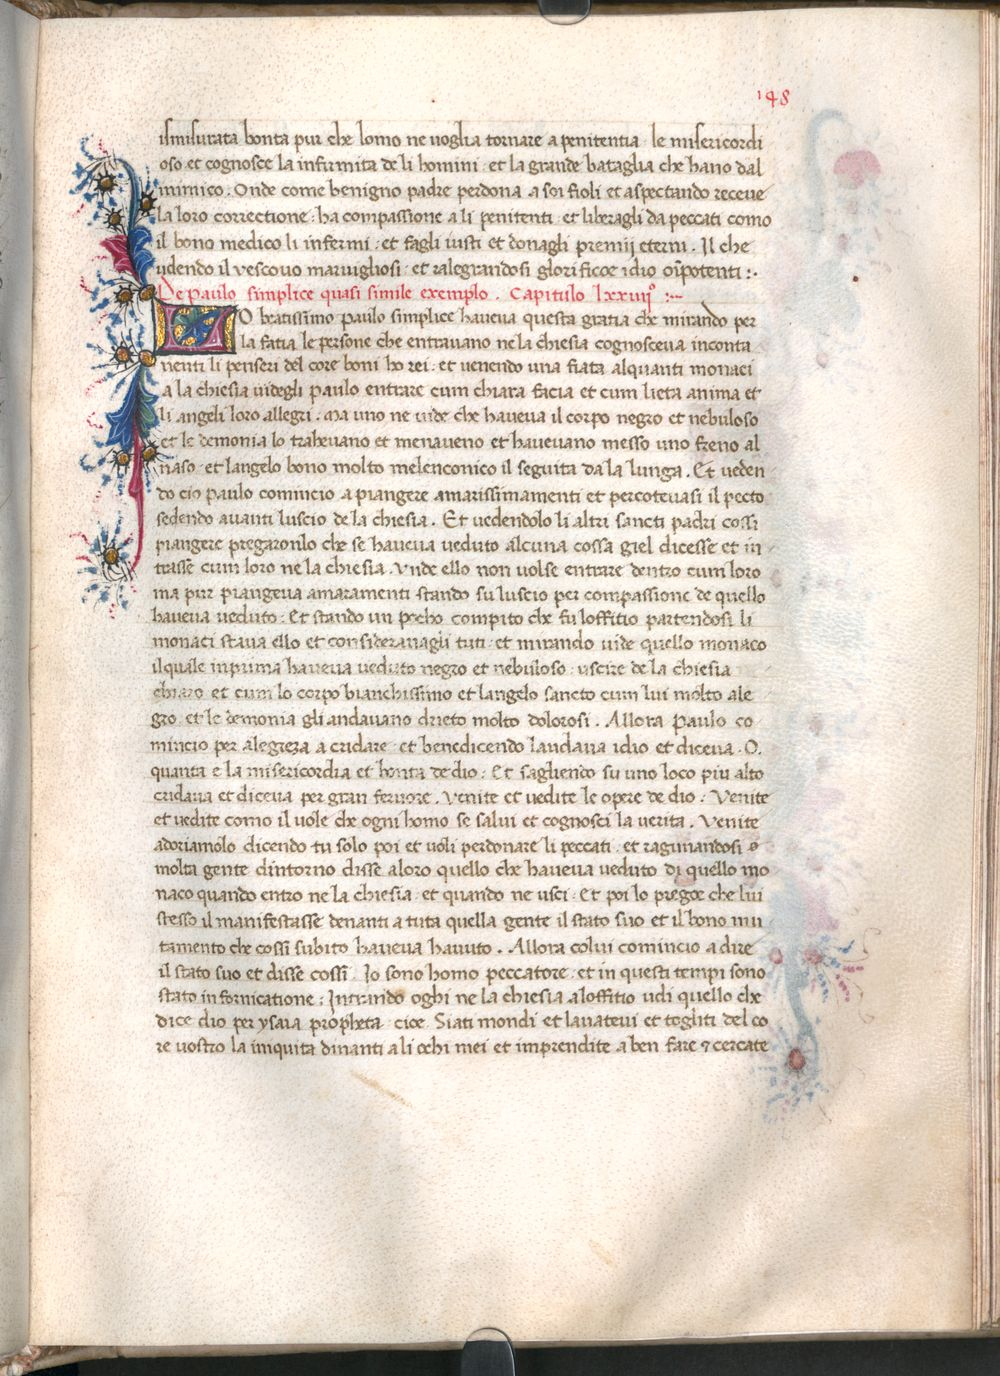 148
ismisurata bonta pur che lomo ne voglia tornare a penitentia · le misericordi
oso et cognosce la infirmita de li homini · et la grande bataglia che hano dal
inimico · Onde come benigno padre perdona a soi fioli et aspectando receve
la loro correctione · ha compassione a li penitenti · et liberagli da peccati como
il bono medico li infermi · et fagli iusti et donagli premij eterni . Il che
udendo il vescovo maruigliosi · et ralegrandosi glorificoe idio oīpotenti :·
De Paulo simplice quasi simile exemplo . Capitulo lxxiiijº :~
LO beatissimo paulo simplice haveva questa gratia che mirando per
la fatia le persone che entravano ne la chiesia cognosceva inconta
nenti li penseri del core boni ho rei · et venendo una fiata alquanti monaci
a la chiesia videgli paulo entrare cum chiara facia et cum lieta anima et
li angeli loro allegri · ma uno ne vide che haveva il corpo negro et nebuloso
et le demonia lo trahevano et menaveno et havevano messo uno freno al
naso · et langelo bono molto melenconico il seguita da la lunga . Et veden
do cio paulo comincio a piangere amarissimamenti et percotevasi il pecto
sedendo avanti luscio de la chiesia . Et vedendolo li altri sancti padri cossi
piangere pregaronlo che se haveva veduto alcuna cossa giel dicesse et in
trasse cum loro ne la chiesia . Unde ello non volse entrare dentro cum loro
ma pur piangeva amaramenti stando su luscio per compassione de quello
haveva veduto · Et stando un pocho compito che fu loffitio partendosi li
monaci stava ello et consideravagli tuti · et mirando vide quello monaco
il quale inprima haveva veduto negro et nebuloso · uscire de la chiesia
chiaro et cum lo corpo bianchissimo et langelo sancto cum lui molto ale
gro · et le demonia gli andavano drieto molto dolorosi . Allora paulo co
mincio per alegreza a cridare · et benedicendo laudava idio et diceva · O.
quanta e la misericordia et bonta de dio : Et sagliendo su uno loco piu alto
cridava et diceva per gran fervore . Venite et vedite le opere de dio : Venite
et vedite como il vole che ogni homo se salvi et cognosci la verita . Venite
adoriamolo dicendo tu solo poi et voli perdonare li peccati · et ragunandosi
molta gente dintorno disse a loro quello che haveva veduto di quello mo
naco quando entro ne la chiesia · et quando ne usci · Et poi lo pregoe che lui
stesso il manifestasse denanti a tuta quella gente il stato suo et il bono mu
tamento che cossi subito haveva havuto . Allora colui comincio a dire
il stato suo et disse cossi . Io sono homo peccatore · et in questi tempi sono
stato in fornicatione : Intrando oghi ne la chiesia a loffitio udi quello che
dice dio per ysaia propheta · cioe · Siati mondi et lavatevi et togliti del co
re vostro la iniquita dinanti a li ochi mei et imprendite a ben fare ⁊ cercate